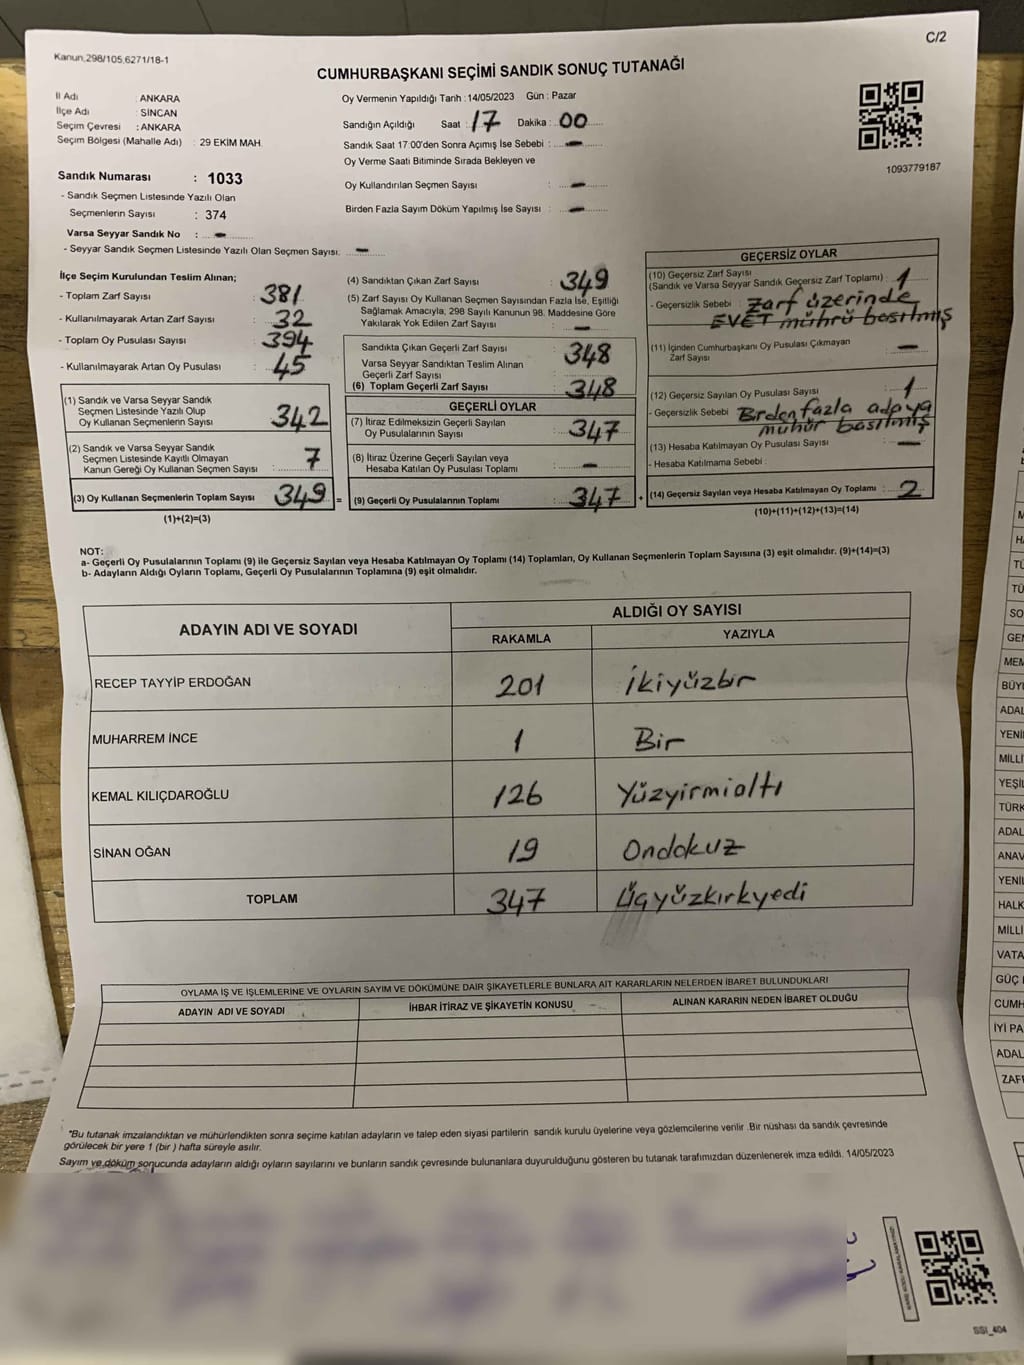 C/2
Kanun.298/105,6271/18-1
CUMHURBAŞKANI SEÇİMİ SANDIK SONUÇ TUTANAĞI
İl Adı : ANKARA
İlçe Adı : SİNCAN
Seçim Çevresi : ANKARA
Seçim Bölgesi (Mahalle Adı) : 29 EKİM MAH.
Oy Vermenin Yapıldığı Tarih :14/05/2023 Gün : Pazar
Sandığın Açıldığı Saat : 17 Dakika : 00
Sandık Saat 17:00'den Sonra Açımış İse Sebebi : -
Oy Verme Saati Bitiminde Sırada Bekleyen ve
Oy Kullandırılan Seçmen Sayısı : -
Birden Fazla Sayım Döküm Yapılmış İse Sayısı : -
1093779187
Sandık Numarası : 1033
- Sandık Seçmen Listesinde Yazılı Olan
Seçmenlerin Sayısı : 374
Varsa Seyyar Sandık No : -
- Seyyar Sandık Seçmen Listesinde Yazılı Olan Seçmen Sayısı: -
İlçe Seçim Kurulundan Teslim Alınan;
- Toplam Zarf Sayısı : 381
- Kullanılmayarak Artan Zarf Sayısı : 32
- Toplam Oy Pusulası Sayısı : 394
- Kullanılmayarak Artan Oy Pusulası : 45
(1) Sandık ve Varsa Seyyar Sandık
Seçmen Listesinde Yazılı Olup
Oy Kullanan Seçmenlerin Sayısı : 342
(2) Sandık ve Varsa Seyyar Sandık
Seçmen Listesinde Kayıtlı Olmayan
Kanun Gereği Oy Kullanan Seçmen Sayısı : 7
(3) Oy Kullanan Seçmenlerin Toplam Sayısı : 349 =
(1)+(2)=(3)
(4) Sandıktan Çıkan Zarf Sayısı : 349
(5) Zarf Sayısı Oy Kullanan Seçmen Sayısından Fazla İse, Eşitliği
Sağlamak Amacıyla, 298 Sayılı Kanunun 98. Maddesine Göre
Yakılarak Yok Edilen Zarf Sayısı : -
Sandıkta Çıkan Geçerli Zarf Sayısı : 348
Varsa Seyyar Sandıktan Teslim Alınan
Geçerli Zarf Sayısı :
(6) Toplam Geçerli Zarf Sayısı : 348
GEÇERLİ OYLAR
(7) İtiraz Edilmeksizin Geçerli Sayılan
Oy Pusulalarının Sayısı : 347
(8) İtiraz Üzerine Geçerli Sayılan veya
Hesaba Katılan Oy Pusulası Toplamı : -
(9) Geçerli Oy Pusulalarının Toplamı : 347 +
GEÇERSİZ OYLAR
(10) Geçersiz Zarf Sayısı
(Sandık ve Varsa Seyyar Sandık Geçersiz Zarf Toplamı) : 1
- Geçersizlik Sebebi : Zarf üzerinde
EVET mührü basılmış
(11) İçinden Cumhurbaşkanı Oy Pusulası Çıkmayan
Zarf Sayısı : -
(12) Geçersiz Sayılan Oy Pusulası Sayısı : 1
- Geçersizlik Sebebi : Birden fazla adaya
mühür basılmış
(13) Hesaba Katılmayan Oy Pusulası Sayısı : -
- Hesaba Katılmama Sebebi :
(14) Geçersiz Sayılan veya Hesaba Katılmayan Oy Toplamı : 2
(10)+(11)+(12)+(13)=(14)
NOT:
a- Geçerli Oy Pusulalarının Toplamı (9) ile Geçersiz Sayılan veya Hesaba Katılmayan Oy Toplamı (14) Toplamları, Oy Kullanan Seçmenlerin Toplam Sayısına (3) eşit olmalıdır. (9)+(14)=(3)
b- Adayların Aldığı Oyların Toplamı, Geçerli Oy Pusulalarının Toplamına (9) eşit olmalıdır.
ADAYIN ADI VE SOYADI
ALDIĞI OY SAYISI
RAKAMLA YAZIYLA
RECEP TAYYİP ERDOĞAN 201 İkiyüzbir
MUHARREM İNCE 1 Bir
KEMAL KILIÇDAROĞLU 126 Yüzyirmialtı
SİNAN OĞAN 19 Ondokuz
TOPLAM 347 Üçyüzkırkyedi
OYLAMA İŞ VE İŞLEMLERİNE VE OYLARIN SAYIM VE DÖKÜMÜNE DAİR ŞİKAYETLERLE BUNLARA AİT KARARLARIN NELERDEN İBARET BULUNDUKLARI
ADAYIN ADI VE SOYADI İHBAR İTİRAZ VE ŞİKAYETİN KONUSU ALINAN KARARIN NEDEN İBARET OLDUĞU
*Bu tutanak imzalandıktan ve mühürlendikten sonra seçime katılan adayların ve talep eden siyasi partilerin sandık kurulu üyelerine veya gözlemcilerine verilir .Bir nüshası da sandık çevresinde
görülecek bir yere 1 (bir ) hafta süreyle asılır.
Sayım ve döküm sonucunda adayların aldığı oyların sayılarını ve bunların sandık çevresinde bulunanlara duyurulduğunu gösteren bu tutanak tarafımızdan düzenlenerek imza edildi. 14/05/2023
SSI_404
TÜ
TÜ
SO
GE
MEM
BÜYÜ
ADAL
YENİ
MİLLİ
YEŞİL
TÜRK
ADAL
ANAV
YENİL
HALK
MİLLİ
VATA
GÜÇ
CUMH
İYİ PA
ADAL
ZAF